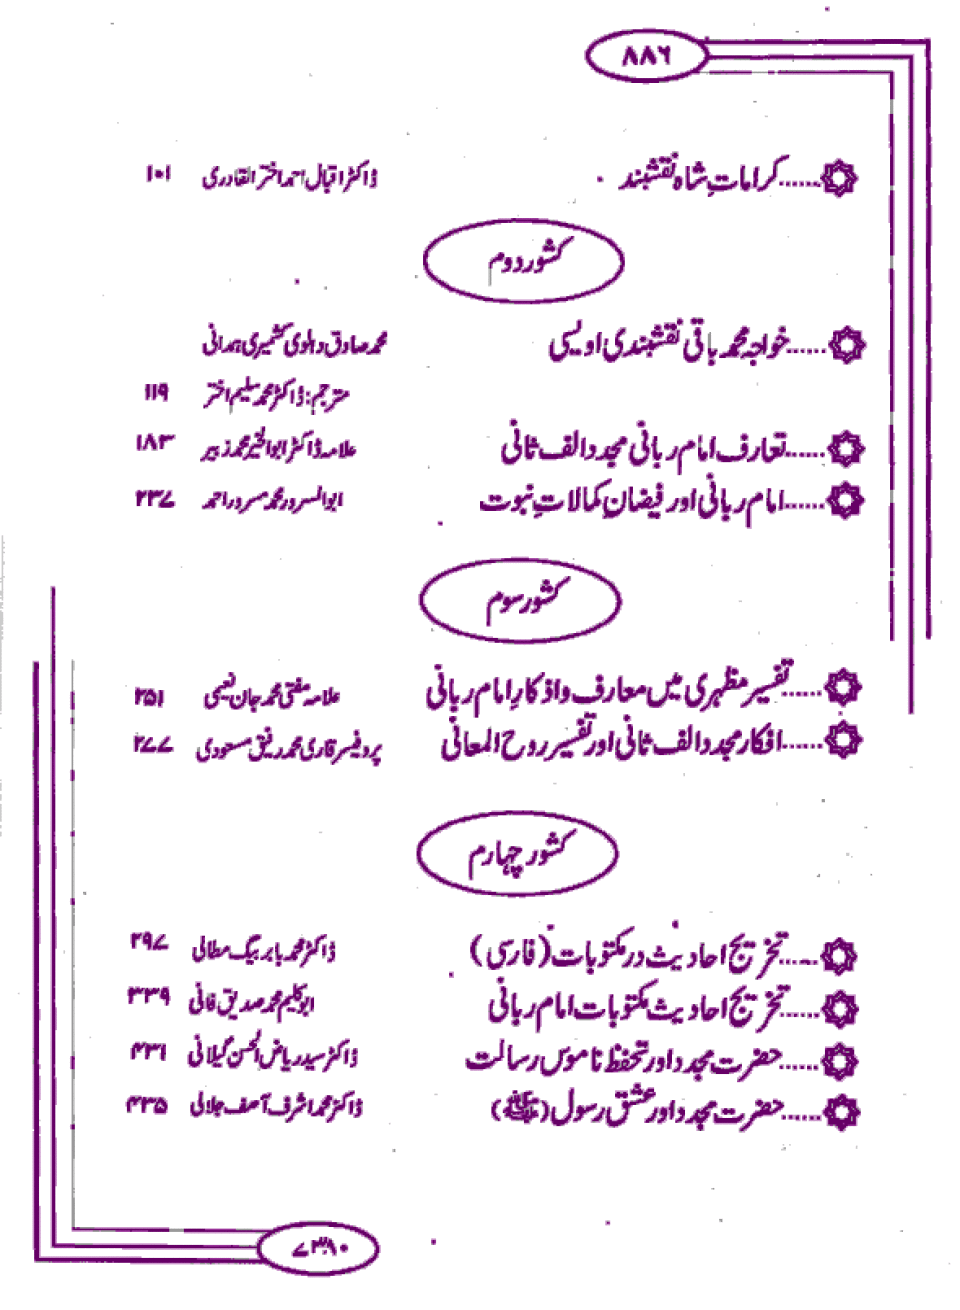 ۸۸۶
کراماتِ شاہ نقشبند...... ڈاکٹر اقبال احمد اختر القادری ۱۰۱
کشور دوم
خواجہ محمد باقی نقشبندی اویسی...... محمد صادق دہلوی کشمیری ہمدانی
مترجم: ڈاکٹر محمد سلیم اختر ۱۱۹
تعارف امام ربانی مجدد الف ثانی...... علامہ ڈاکٹر ابوالخیر محمد زبیر ۱۸۳
امام ربانی اور فیضانِ کمالاتِ نبوت...... ابوالسرور محمد مسرور احمد ۲۳۷
کشور سوم
تفسیر مظہری میں معارف و اذکارِ امام ربانی...... علامہ مفتی محمد جان نعیمی ۲۵۱
افکار مجدد الف ثانی اور تفسیر روح المعانی...... پروفیسر قاری محمد رفیق مسعودی ۲۷۷
کشور چہارم
تخریج احادیث در مکتوبات (فارسی)...... ڈاکٹر محمد بابر بیگ مطالی ۲۹۷
تخریج احادیث مکتوبات امام ربانی...... ابوکلیم محمد صدیق فانی ۳۳۹
حضرت مجدد اور تحفظ ناموس رسالت...... ڈاکٹر سید ریاض الحسن گیلانی ۴۳۱
حضرت مجدد اور عشق رسول (ﷺ)...... ڈاکٹر محمد اشرف آصف جلالی ۴۳۵